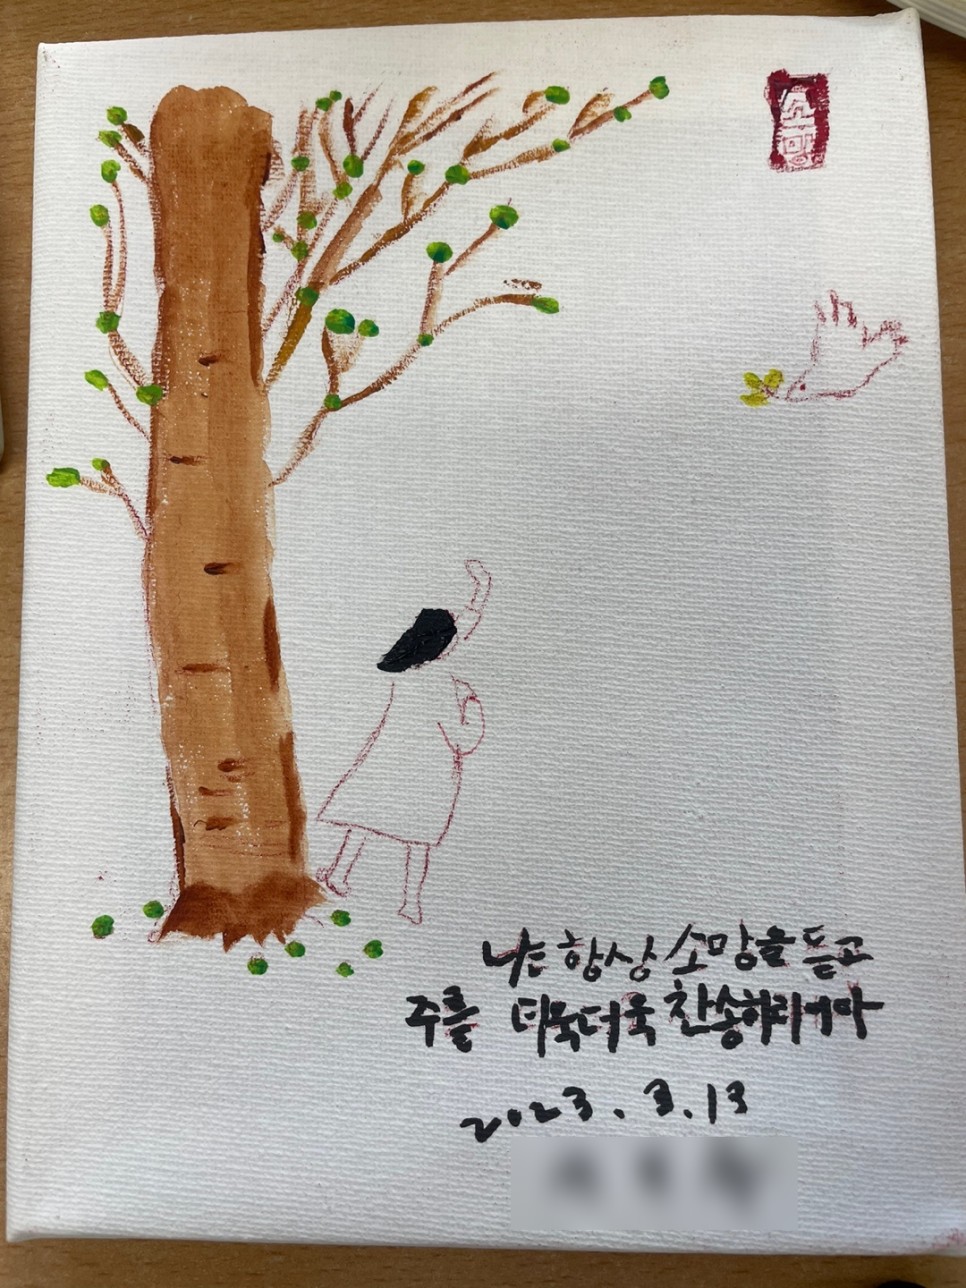 소망
나는 항상 소망을 듣고
주를 더욱더욱 찬송하리이다
2023.3.13